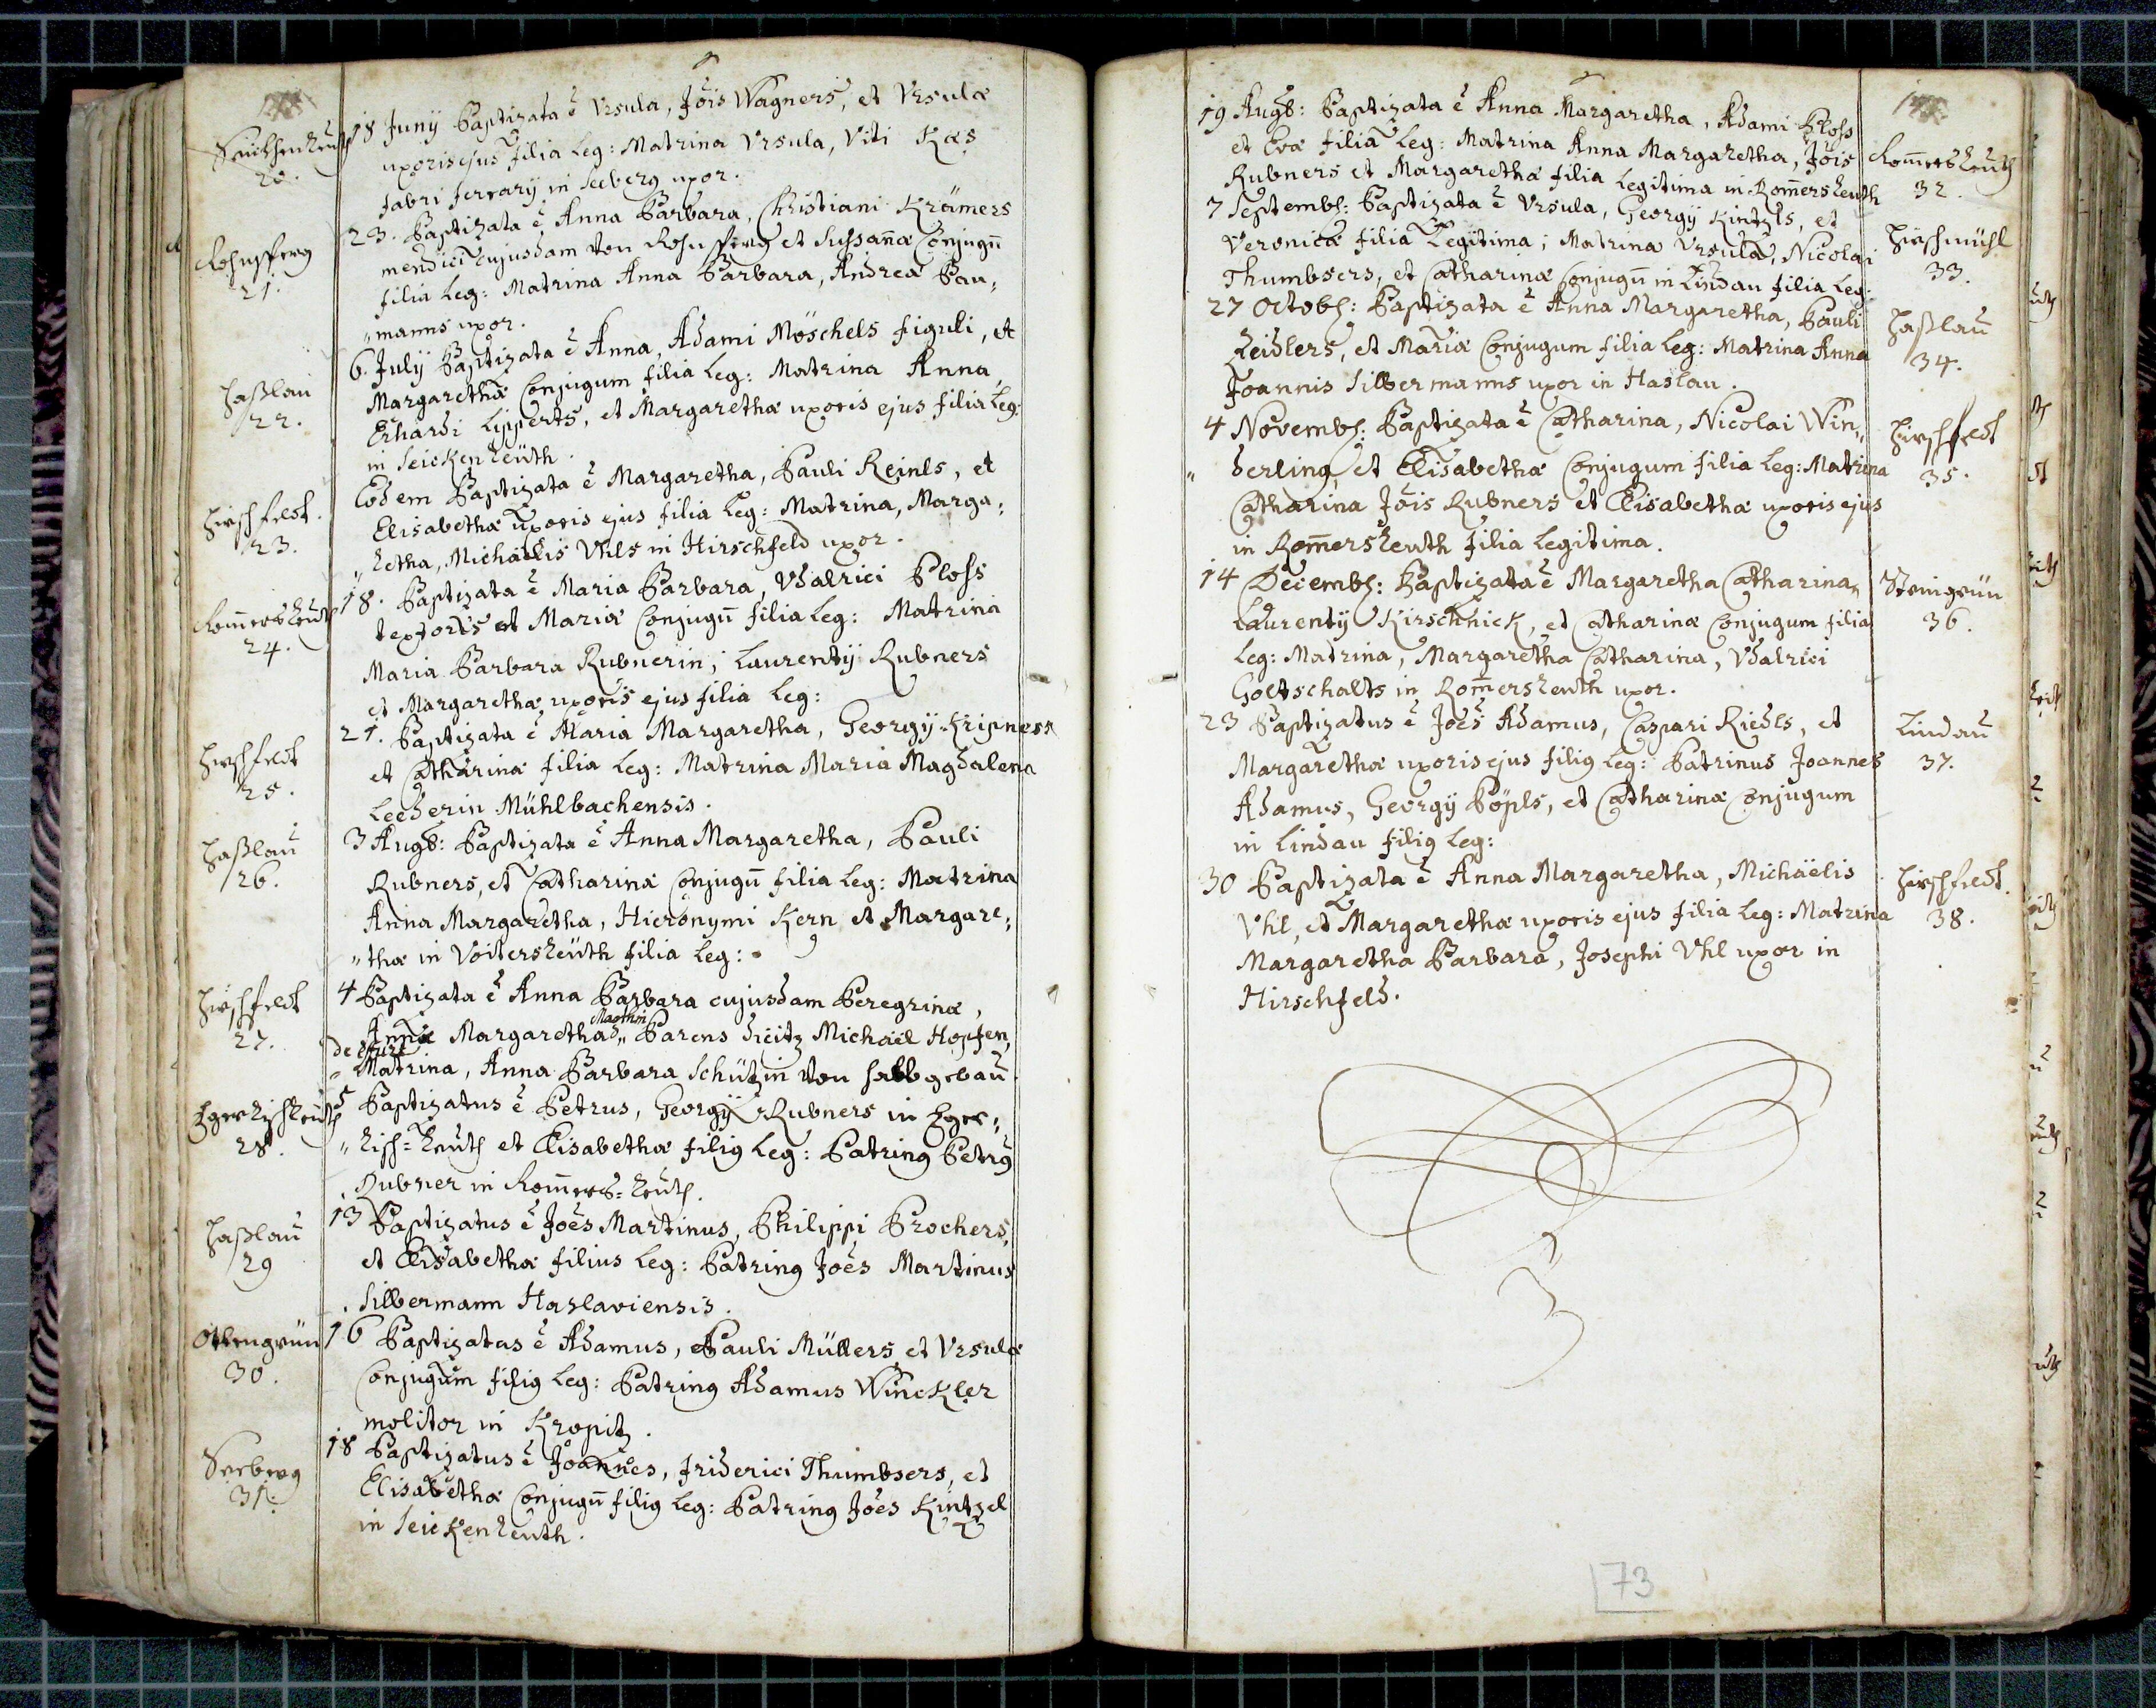 Seickenreuth
20.
18 Junij Baptizata ẽ Vrsula, Jöis Wagners, et Vrsulæ
uxoris ejus filia Leg: Matrina Vrsula, Viti Kæs
fabri ferrarij in Seeberg uxor.
21.
23. Baptizata ẽ Anna Barbara, Christiani Krämers
mendici cujusdam von et Sussañæ Conjugũ
filia Leg: Matrina Anna Barbara, Andreæ Bau„
„manns uxor.
Haßlau
22.
6. Julij Baptizata ẽ Anna, Adami Möschels figuli, et
Margarethæ Conjugum filia Leg: Matrina Anna,
Erhardi Lipperts, et Margarethæ uxoris ejus filia Leg:
in Seickenreüth.
Hirschfeldt.
23.
Eodem Baptizata ẽ Margaretha, Pauli Reinls, et
Elisabethæ uxoris ejus filia Leg: Matrina, Marga„
„retha, Michaëlis Vhls in Hirschfeld uxor.
Rom̃ersreuth
24.
18. Baptizata ẽ Maria Barbara, Vdalrici Ploss
textoris et Mariæ Conjugũ filia Leg: Matrina
Maria Barbara Rubnerin, Laurentij Rubners
et Margarethæ uxoris ejus filia Leg:
Hirschfeldt
25.
21. Baptizata ẽ Maria Margaretha, Georgij Kripners
et Catharinæ filia Leg: Matrina Maria Magdalena
Lederin Mühlbachensis.
Haßlau
26.
3 Augb: Baptizata ẽ Anna Margaretha, Pauli
Rubners, et Catharinæ Conjugũ filia Leg: Matrina
Anna Margaretha, Hieronymi Kern et Margare„
„thæ in Voitersreüth filia Leg:
Hirschfeldt
27.
4 Baptizata ẽ Anna Barbara cujusdam Peregrinæ,
Annæ Margarethæ „ Parens Michaël Hopfen,
Matrina, Anna Barbara Schützin von
Egerischreuth
28.
5 Baptizatus ẽ Petrus, Georgij Rubners in Eger„
„risch=reuth et Elisabethæ filig Leg: Patring Petrg
Rubner in Rom̃ers=reuth.
Haßlau
29
13 Baptizatus ẽ Joẽs Martinus, Philippi Prochers,
et Elisabethæ filius Leg: Patring Joẽs Martinus
Silbermann Haslaviensis.
Ottengrün
30.
16 Baptizatus ẽ Adamus, Pauli Müllers et Vrsulæ
Conjugum filig Leg: Patring Adamus Winckler
molitor in Kropitz.
Seeberg
31.
18 Baptizatus ẽ Joannes, Friderici Thumbsers, et
Elisabethæ Conjugũ filig Leg: Patring Joẽs Kintzel
in Seickenreuth.
19 Augb: Baptizata ẽ Anna Margaretha, Adami Ploss
et Evæ filia Leg: Matrina Anna Margaretha, Jöis
Rubners et Margarethæ filia Legitima in Rom̃ersreuth
Rom̃ersreuth
32.
7 Septemb: Baptizata ẽ Vrsula, Georgij Kintzls, et
Veronicæ filia Legitima; Matrina Vrsula, Nicolai
Thumbsers, et Catharinæ Conjugũ in Lindau filia Leg:
Hirschmühl
33.
27 Octob: Baptizata ẽ Anna Margaretha, Pauli
Zeidlers, et Mariæ Conjugum filia Leg: Matrina Anna
Joannis Silbermanns uxor in Haslau.
Haßlau
34.
4 Novemb: Baptizata ẽ Catharina, Nicolai Win„
„derling, et Elisabethæ Conjugum filia Leg: Matrina
Catharina Jöis Rubners et Elisabethæ uxoris ejus
in Rom̃ersreuth filia Legitima.
Hirschfeldt
35.
14 Decemb: Baptizata ẽ Margaretha Catharina,
Laurentij Kirschnick, et Catharinæ Conjugum filia
Leg: Matrina, Margaretha Catharina, Vdalrici
Goltschalts in Rom̃ersreuth uxor.
Steingrün
36.
23 Baptizatus ẽ Joẽs Adamus, Caspari Riedls, et
Margarethæ uxoris ejus filig Leg: Patrinus Joannes
Adamus, Georgij Böpls, et Catharinæ Conjugum
in Lindau filig Leg:
Lindau
37.
30 Baptizata ẽ Anna Margaretha, Michaëlis
Vhl, et Margarethæ uxoris ejus filia Leg: Matrina
Margaretha Barbara, Josephi Vhl uxor in
Hirschfeld.
Hirschfeldt.
38.
73